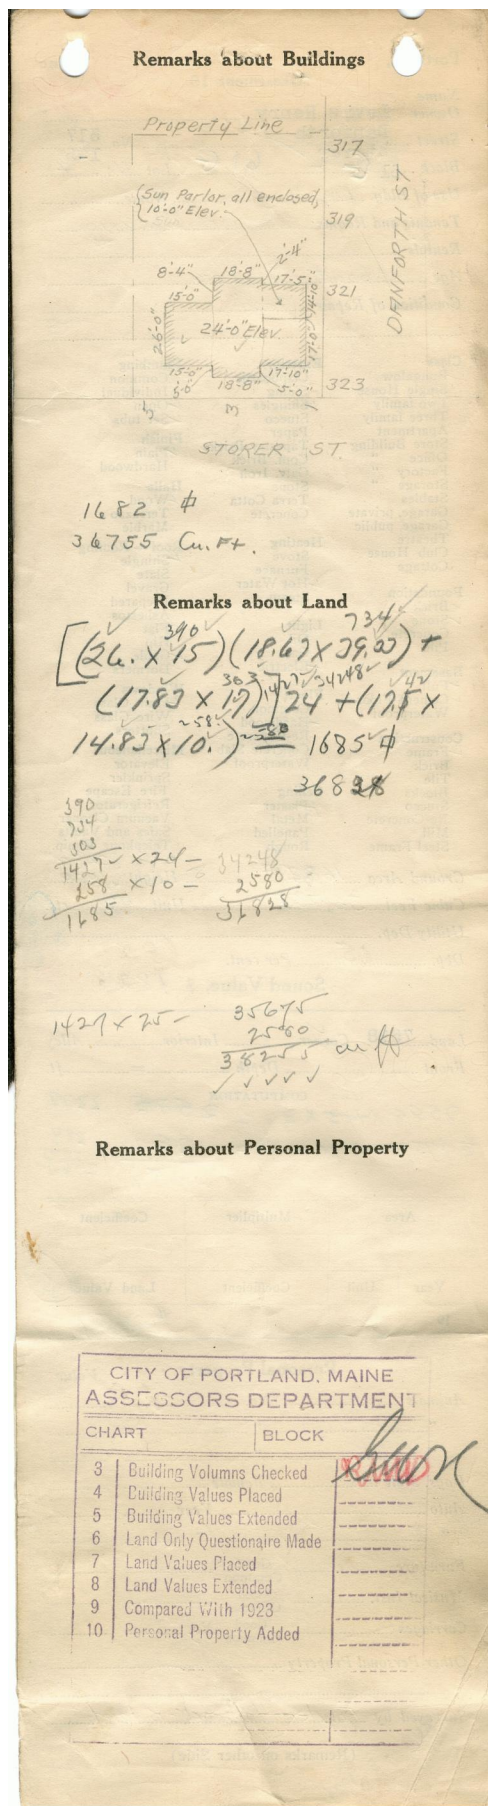 Remarks about Buildings
Property Line
317
DANFORTH ST.
Sun Parlor, all enclosed,
10'-0" Elev.
319
2'-4"
8'-4" 18'-8" 17'-5"
321
15'-0"
14'-10"
26'-0"
24'-0" Elev.
17'-0"
15'-0" 17'-10"
5'-0" 18'-8" 5'-0"
323
5 3 1
STORER ST.
1682 ф
36755 Cu. Ft.
Remarks about Land
390 734
[(26. x 15) (18.67 x 39.33) +
303 1427 34248
(17.83 x 17)] 24 + (17.5 x
258 2580
14.83 x 10.) = 1685 ф
36828
390
734
303
1427 x 24 - 34248
258 x 10 - 2580
1685. 36828
1427 x 25 - 35675
2580
38255 cu ft
Remarks about Personal Property
CITY OF PORTLAND, MAINE
ASSESSORS DEPARTMENT
CHART BLOCK
3 Building Volumns Checked
4 Building Values Placed
5 Building Values Extended
6 Land Only Questionaire Made
7 Land Values Placed
8 Land Values Extended
9 Compared With 1923
10 Personal Property Added